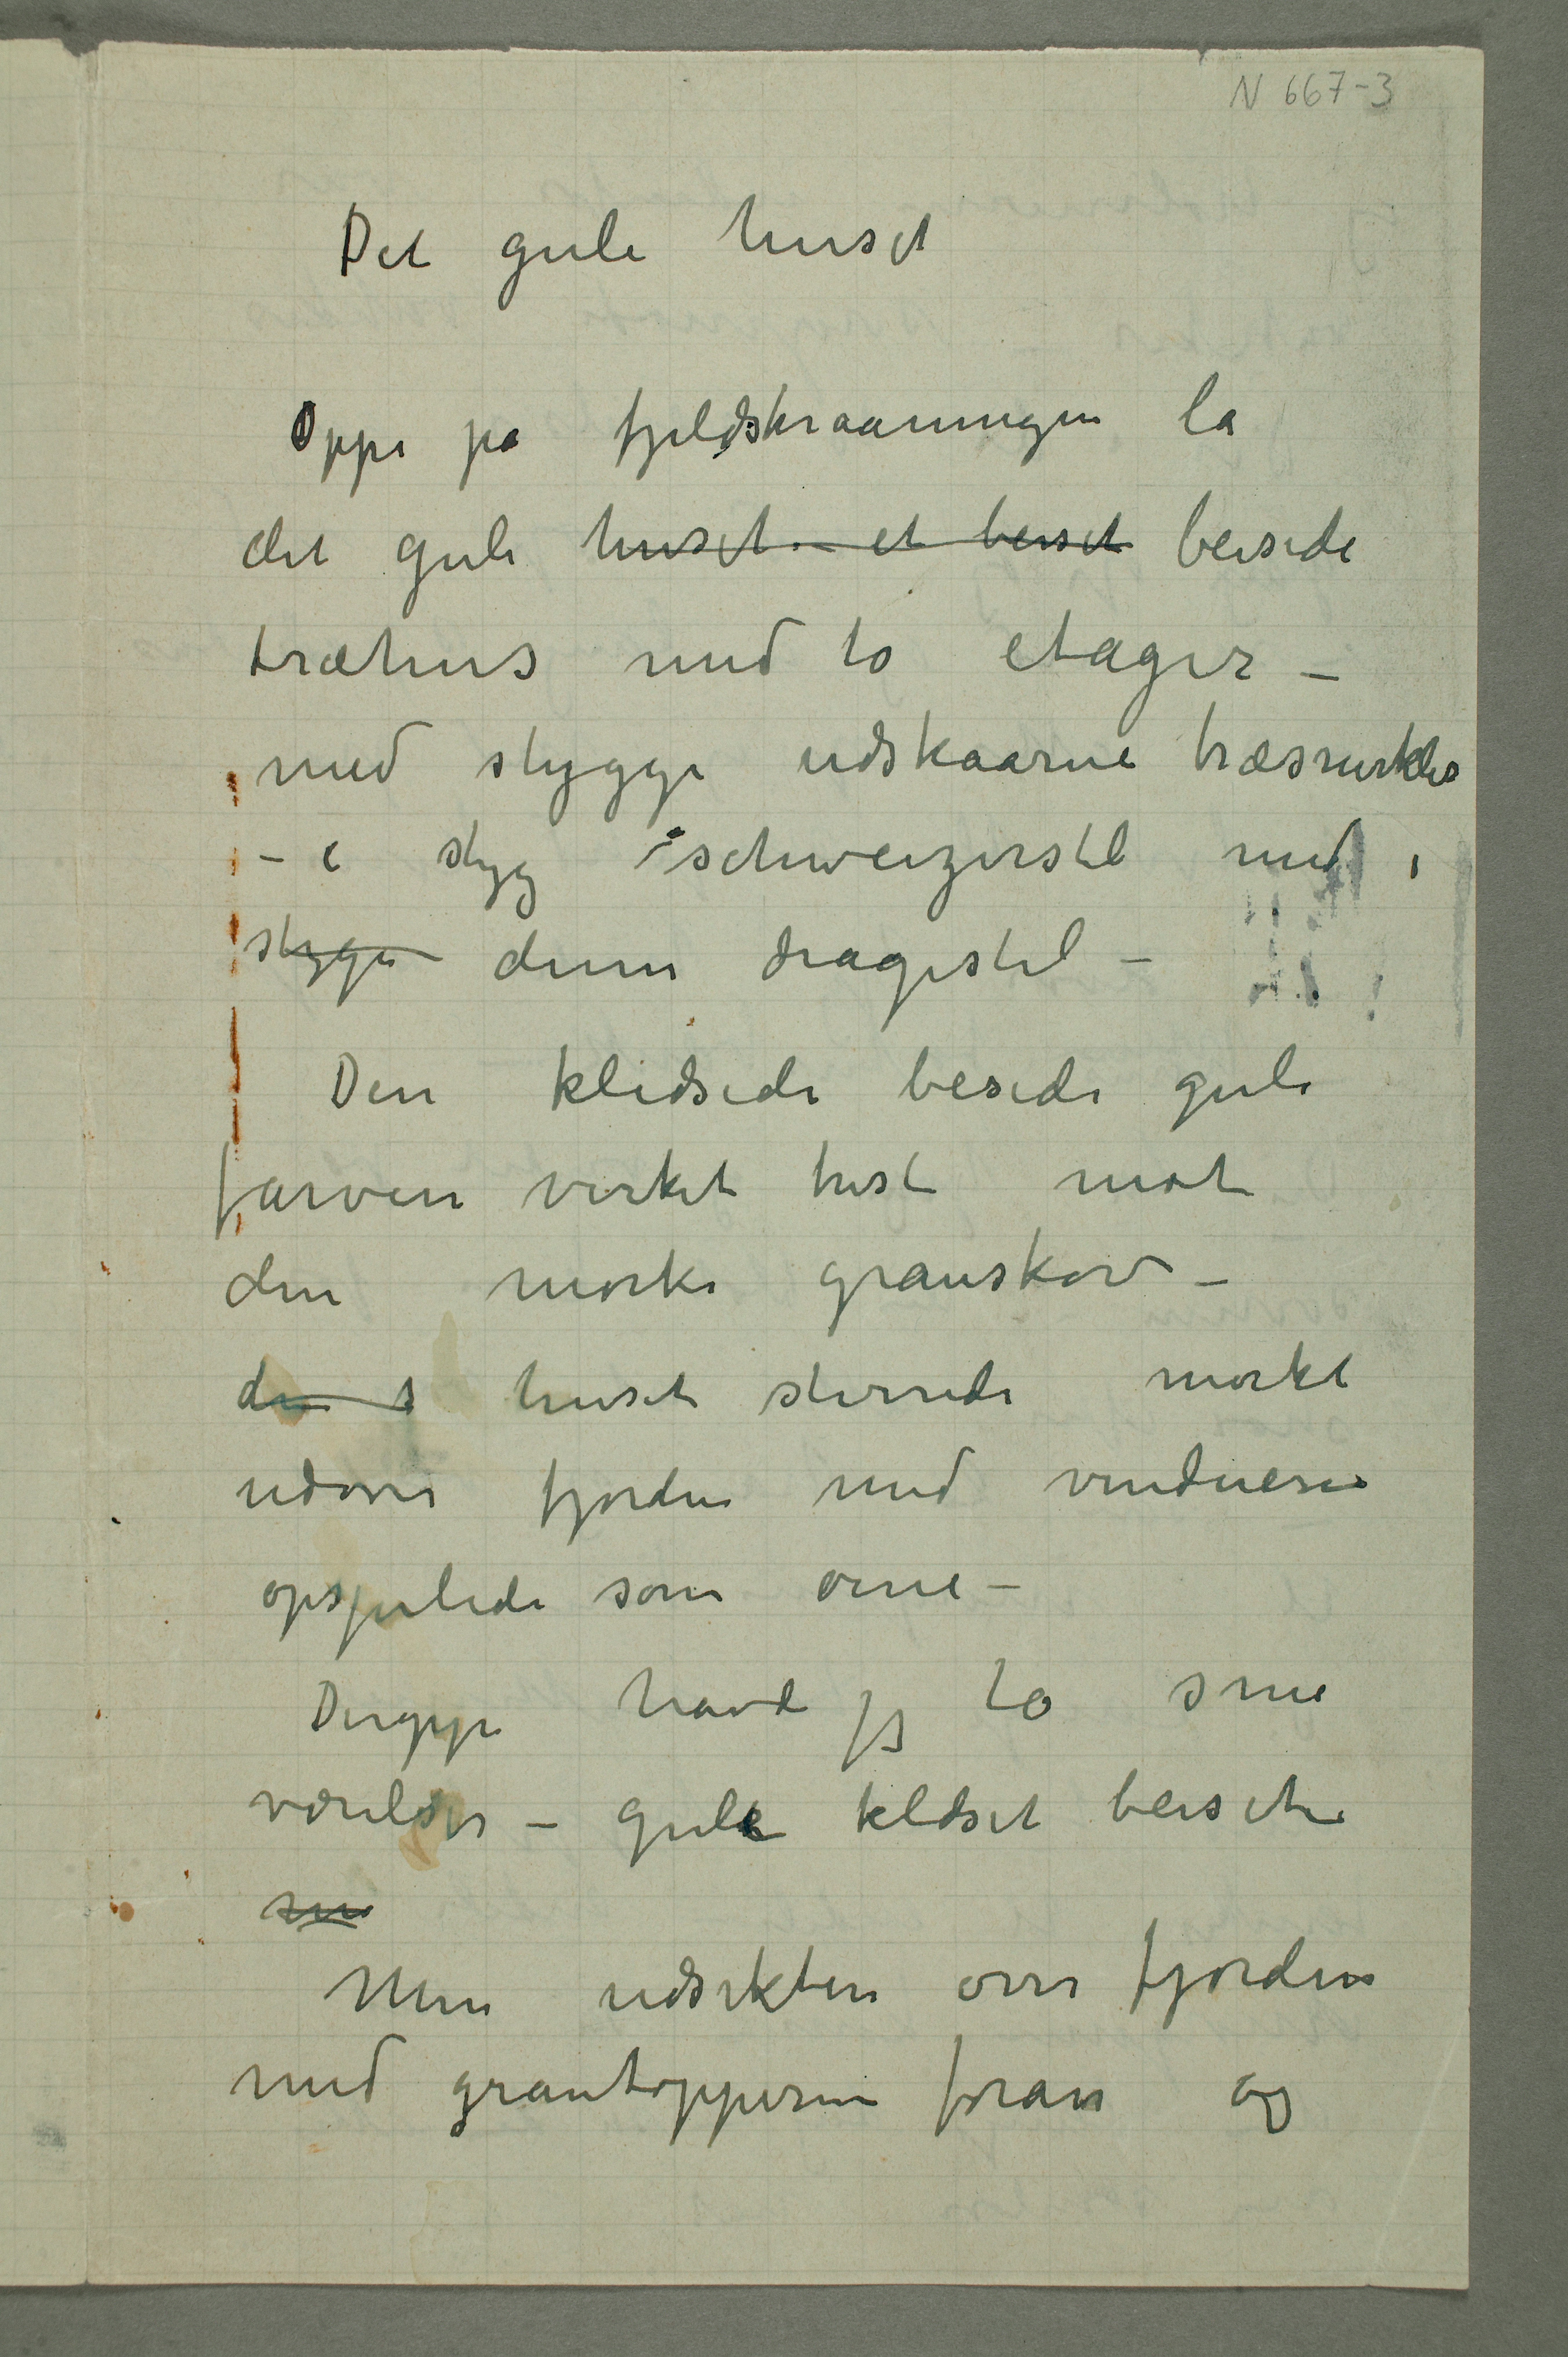 N 667-3
Det gule huset
Oppe pa fjeldskraaningen la
det gule huset – et beiset beisede
træhus med to etager –
med stygge udskaarne træsnirkler
– i styg schweizerstil med
stygge dum dragestil –
Den klidsede besede gule
farven virket trist mot
den mørke granskov –
den s huset stirrede mørkt
udover fjorden med vinduerne
opspilede som øine –
Deroppe havde jeg to små
værelser – gule kldset beisete
Men udsikten over fjorden
med grantopperne foran og